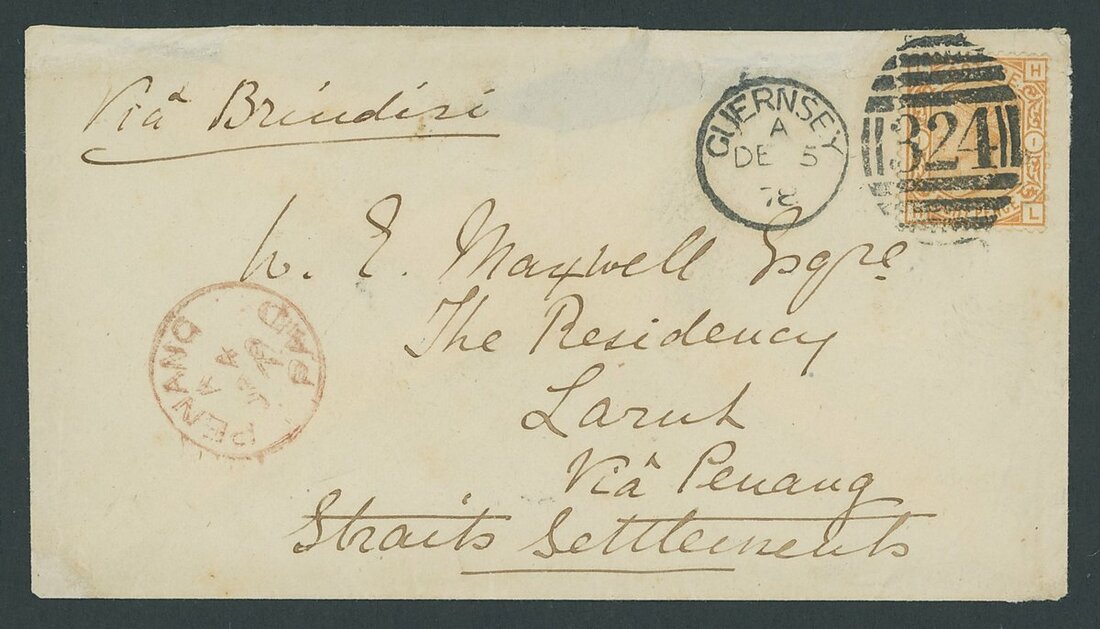 Viâ Brindisi
GUERNSEY
A
DE 5
78
324
H
L
W. E. Maxwell Esqre
The Residency
Larut
Viâ Penang
Straits Settlements
PENANG
PAID